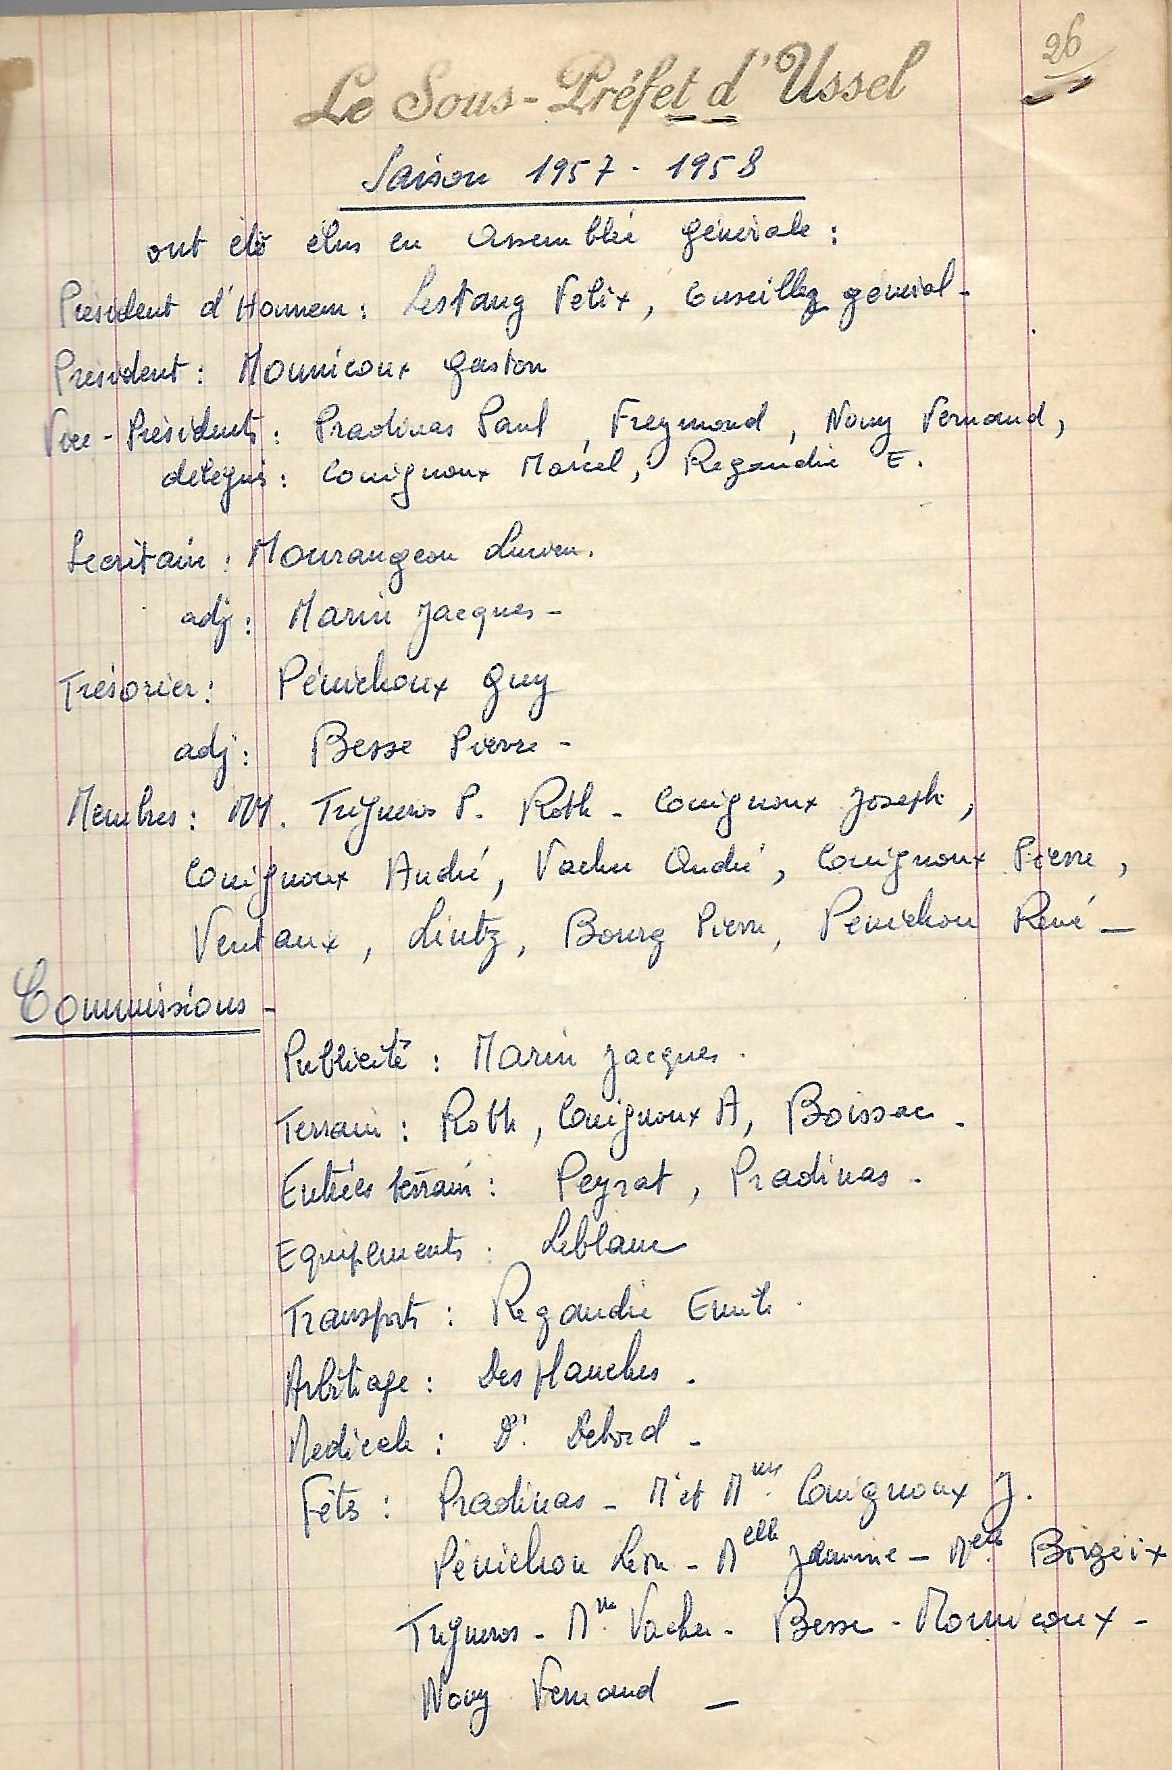 26
Le Sous-Préfet d'Ussel
Saison 1957 - 1958
ont été élus en Assemblée générale :
Président d'Honneur : Lestang Félix, Conseiller général -
Président : Mounicoux Gaston
Vice-Présidents : Pradinas Paul, Freymond, Nouy Fernand,
délégués : Couignoux Marcel, Regaudie E.
Secrétaire : Mourangeon Lucien.
adj : Marin Jacques -
Trésorier : Pénichoux Guy
adj : Besse Pierre -
Membres : MM. Trigueros P. Roth - Couignoux Joseph,
Couignoux André, Vacher André, Couignoux Pierre,
Ventaux, Lintz, Bourg Pierre, Penichon René -
Commissions -
Publicité : Marin Jacques.
Terrain : Roth, Couignoux A, Boissac -
Entrées terrain : Peyrat, Pradinas -
Equipements : Leblanc
Transports : Regaudie Emile.
Arbitrage : Desplanches.
Médicale : Dr. Debord -
Fêtes : Pradinas - Mr et Mme Couignoux J.
Pénichon Léon - Melle Jeanine - Melle Boizeix
Trigueros - Mme Vacher - Besse - Mounicoux -
Nouy Fernand -